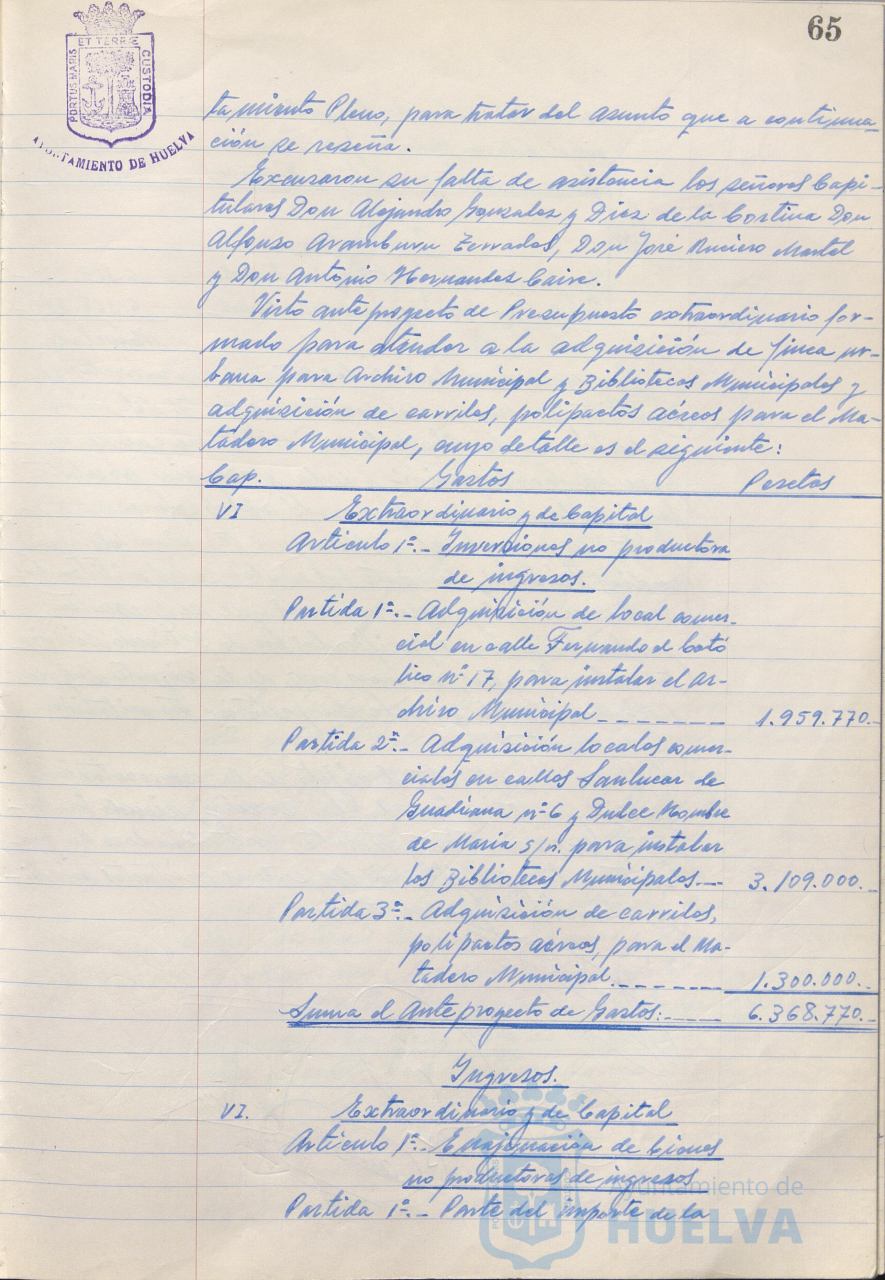 65
PORTUS MARIS ET TERRÆ CUSTODIA
AYUNTAMIENTO DE HUELVA
tamiento Pleno, para tratar del asunto que a continua-
ción se reseña.
Excusaron su falta de asistencia los señores Capi-
tulares Don Alejandro Gonzalez y Diez de la Cortina Don
Alfonso Aramburu Terrades, Don José Ruciero Martel
y Don Antonio Hernandez Caire.
Visto anteproyecto de Presupuesto extraordinario for-
mado para atender a la adquisición de finca ur-
bana para Archivo Municipal y Bibliotecas Municipales y
adquisición de carriles, polipactos aéreos para el Ma-
tadero Municipal, cuyo detalle es el siguiente:
Cap. Gastos Pesetas
VI Extraordinario y de Capital
Articulo 1º.- Inversiones no productora
de ingresos.
Partida 1ª.- Adquisición de local comer-
cial en calle Fernando el Cató
lico nº 17, para instalar el Ar-
chivo Municipal------- 1.959.770.-
Partida 2ª.- Adquisición locales comer-
ciales en calles Sanlucar de
Guadiana nº 6 y Dulce Nombre
de Maria s/n. para instalar
las Bibliotecas Municipales.-- 3.109.000.-
Partida 3ª.- Adquisición de carriles,
polipactos aéreos, para el Ma-
tadero Municipal.------- 1.300.000.-
Suma el Anteproyecto de Gastos:----- 6.368.770.-
Ingresos.
VI. Extraordinario y de Capital
Articulo 1º.- Enajenación de bienes
no productoras de ingresos
Partida 1ª.- Parte del importe de la
Ayuntamiento de
HUELVA